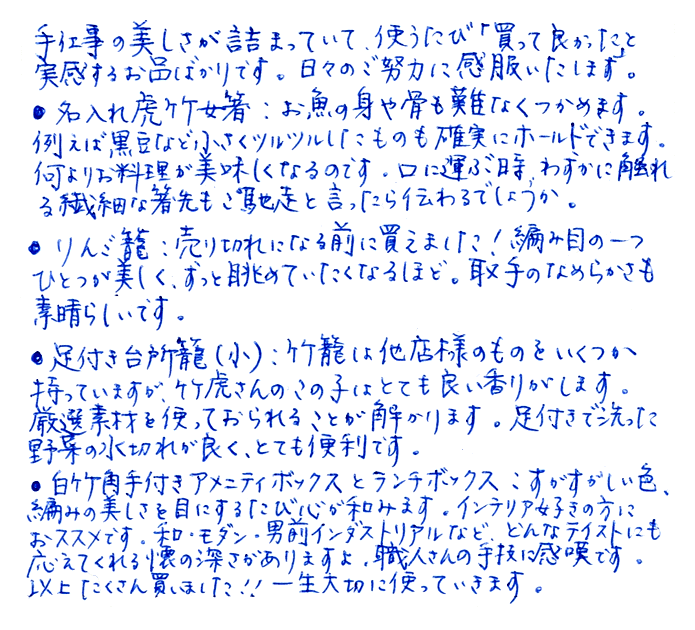 手仕事の美しさが詰まっていて、使うたび「買って良かった」と
実感するお品ばかりです。日々のご努力に感服いたします。
● 名入れ虎竹女箸：お魚の身や骨も難なくつかめます。
例えば黒豆など小さくツルツルしたものも確実にホールドできます。
何よりお料理が美味しくなるのです。口に運ぶ時、わずかに触れ
る繊細な箸先もご馳走と言ったら伝わるでしょうか。
● りんご籠：売り切れになる前に買えました！編み目の一つ
ひとつが美しく、ずっと眺めていたくなるほど。取手のなめらかさも
素晴らしいです。
● 足付き台所籠(小)：竹籠は他店様のものをいくつか
持っていますが、竹虎さんのこの子はとても良い香りがします。
厳選素材を使っておられることが解かります。足付きで洗った
野菜の水切れが良く、とても便利です。
● 白竹角手付きアメニティボックスとランチボックス：すがすがしい色、
編みの美しさを目にするたび心が和みます。インテリア好きの方に
おススメです。和・モダン・男前インダストリアルなど、どんなテイストにも
応えてくれる懐の深さがありますよ。職人さんの手技に感嘆です。
以上たくさん買いました!! 一生大切に使っていきます。